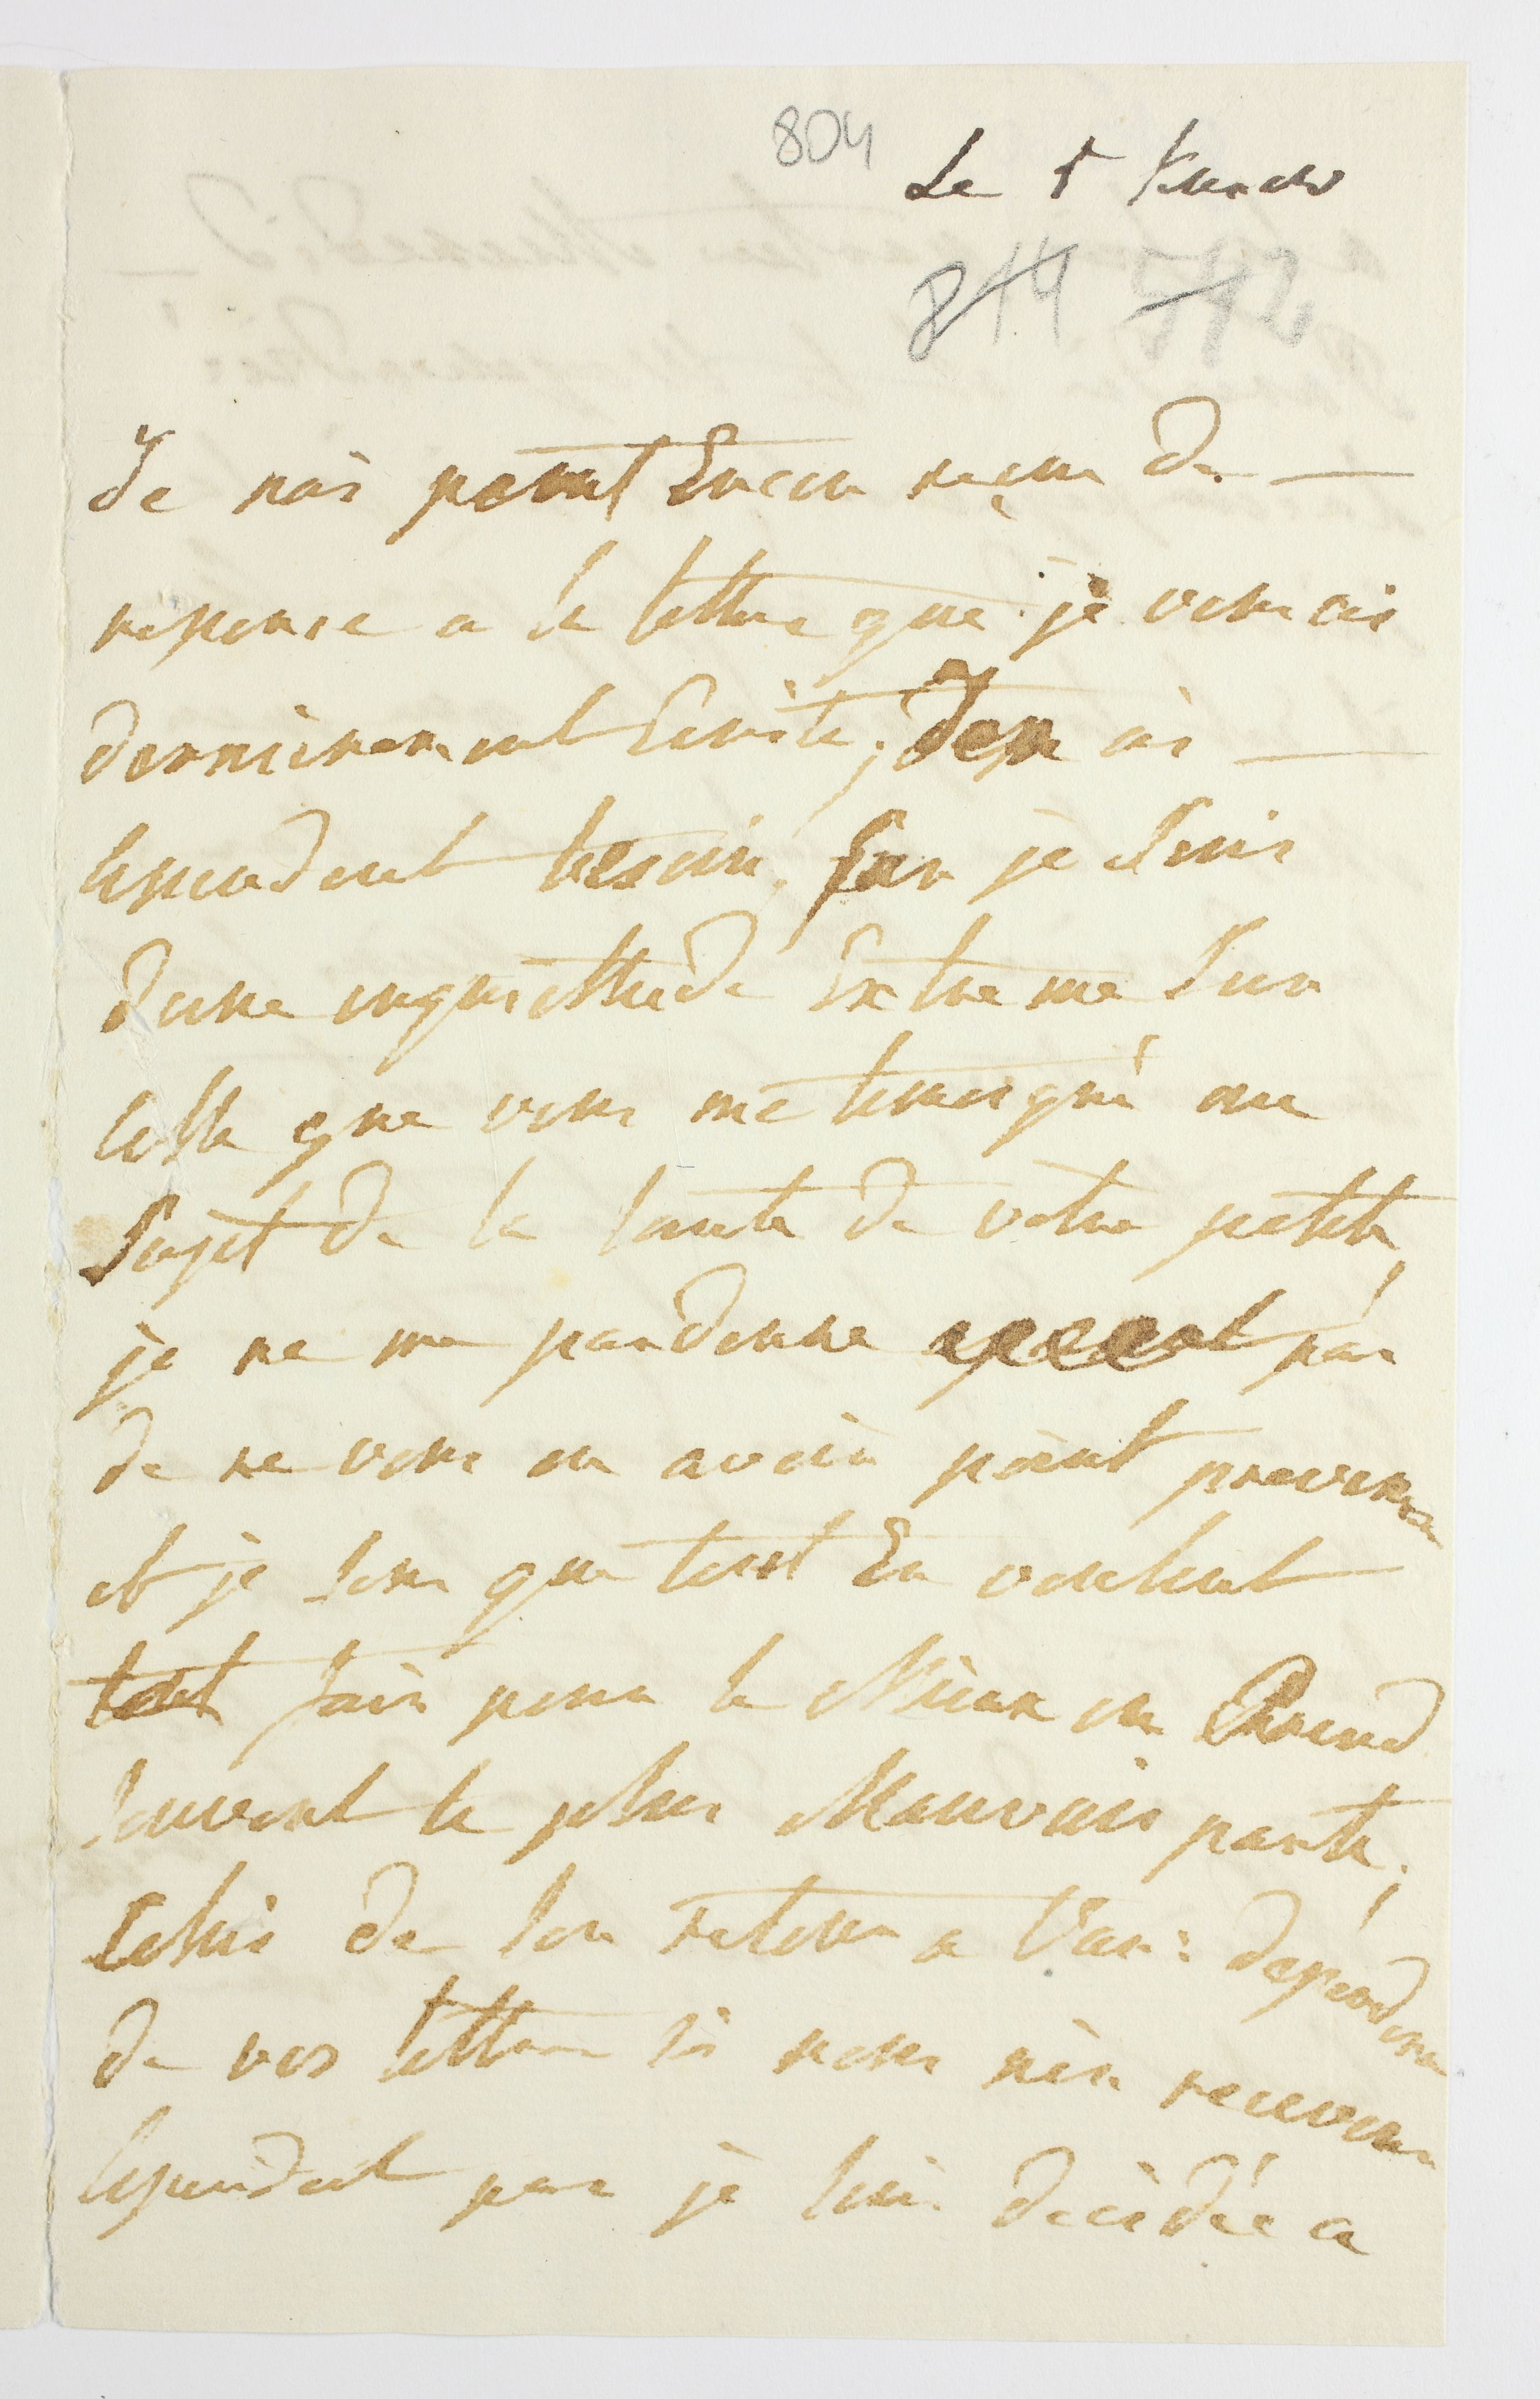 804
Le 5
844 542
Je nai point Encor reçue de
reponse a la lettre que je vous ai
dernierement Ecrite, Jen ai
cependent besoin, Car je suis
dune inquiettude Extreme sur
celle que vous me temoigné au
sujet de la santé de votre petite,
je ne me pardonne pas
de ne vous en avoir point prevenu
et je sens que tout En voulent
tout fair pour le Mieux on Prend
souvent le plus Mauvais partie,
Celui de son retour a Var: dependra
de vos lettres si nous nen recevons
cependent pas je suis decidée a